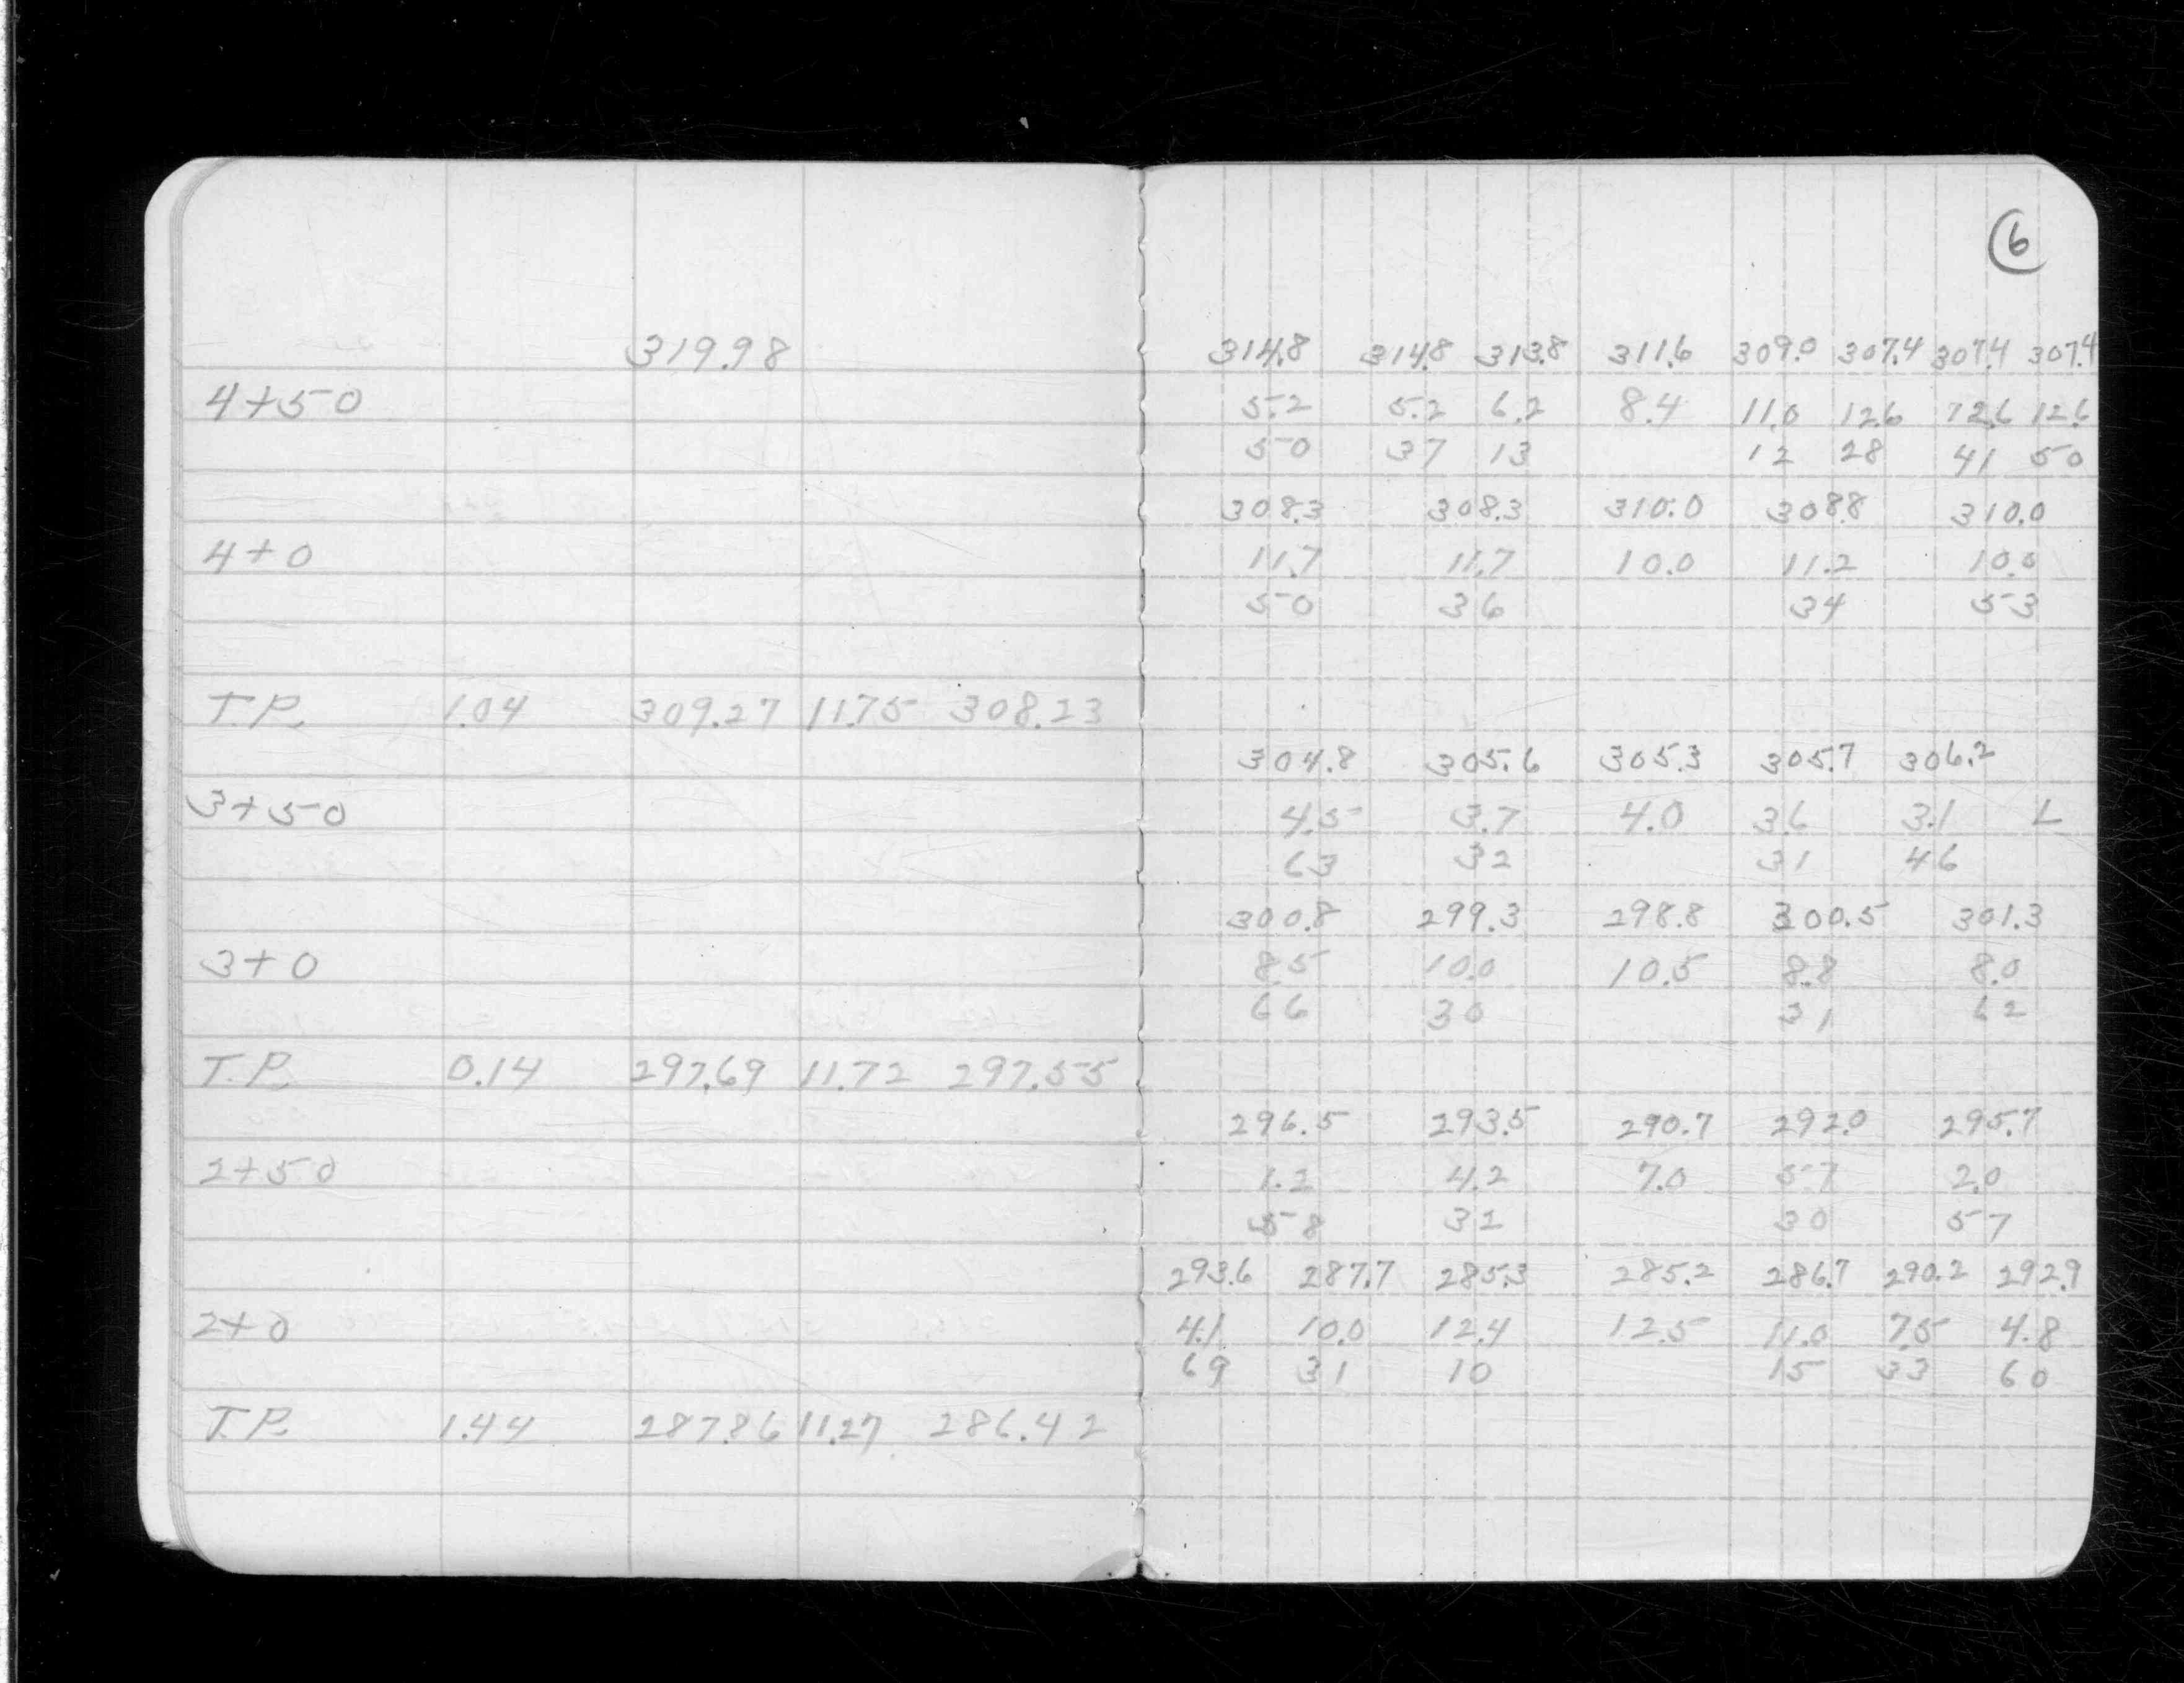 6
319.98 314.8 314.8 313.8 311.6 309.0 307.4 307.4 307.4
4+50 5.2 5.2 6.2 8.4 11.0 12.6 12.6 12.6
50 37 13 12 28 41 50
308.3 308.3 310.0 308.8 310.0
4+0 11.7 11.7 10.0 11.2 10.0
50 36 34 53
T.P. 1.04 309.27 11.75 308.23
304.8 305.6 305.3 305.7 306.2
3+50 4.5 3.7 4.0 3.6 3.1 L
63 32 31 46
300.8 299.3 298.8 300.5 301.3
3+0 8.5 10.0 10.5 8.8 8.0
66 30 31 62
T.P. 0.14 297.69 11.72 297.55
296.5 293.5 290.7 292.0 295.7
2+50 1.2 4.2 7.0 5.7 2.0
58 32 30 57
293.6 287.7 285.3 285.2 286.7 290.2 292.9
2+0 4.1 10.0 12.4 12.5 11.0 7.5 4.8
69 31 10 15 33 60
T.P. 1.44 287.86 11.27 286.42